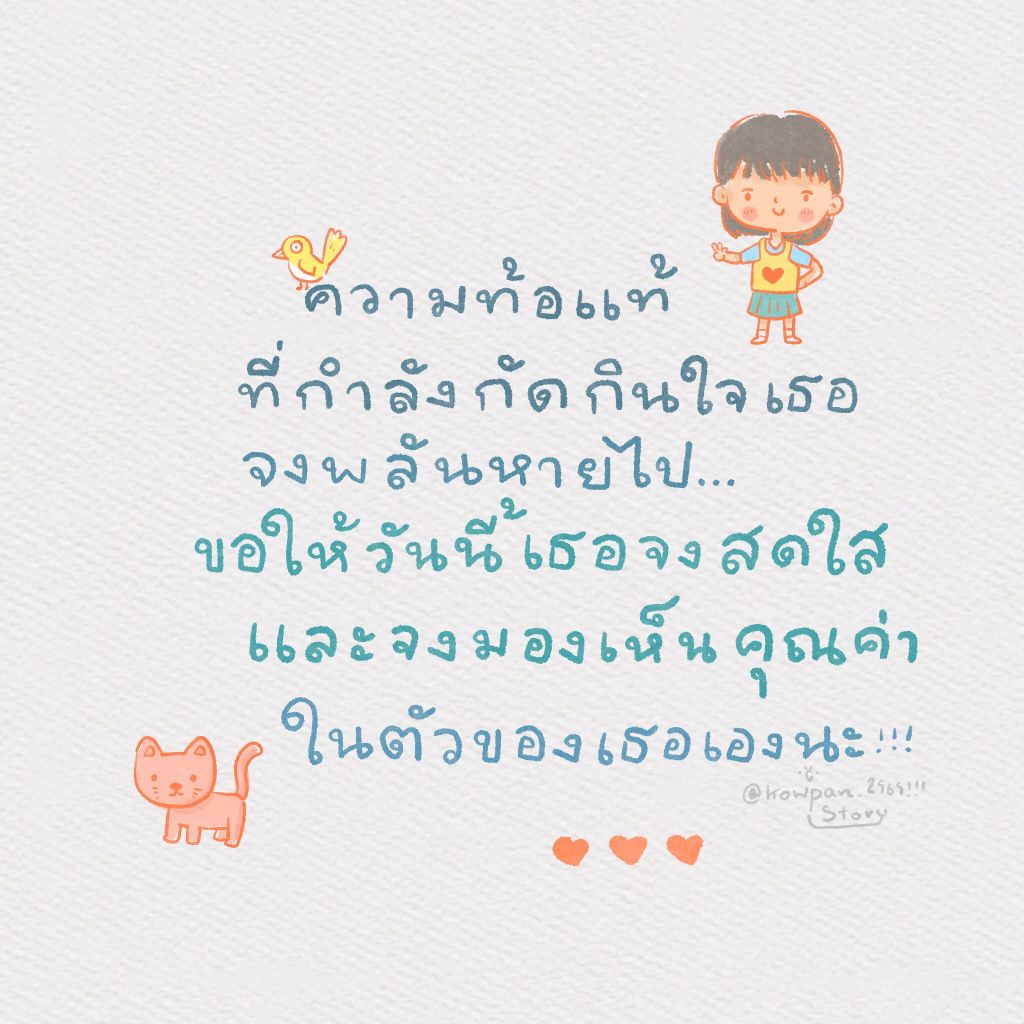 ความท้อแท้
ที่กำลังกัดกินใจเธอ
จงพลันหายไป...
ขอให้วันนี้เธอจงสดใส
และจงมองเห็นคุณค่า
ในตัวของเธอเองนะ!!!
Story